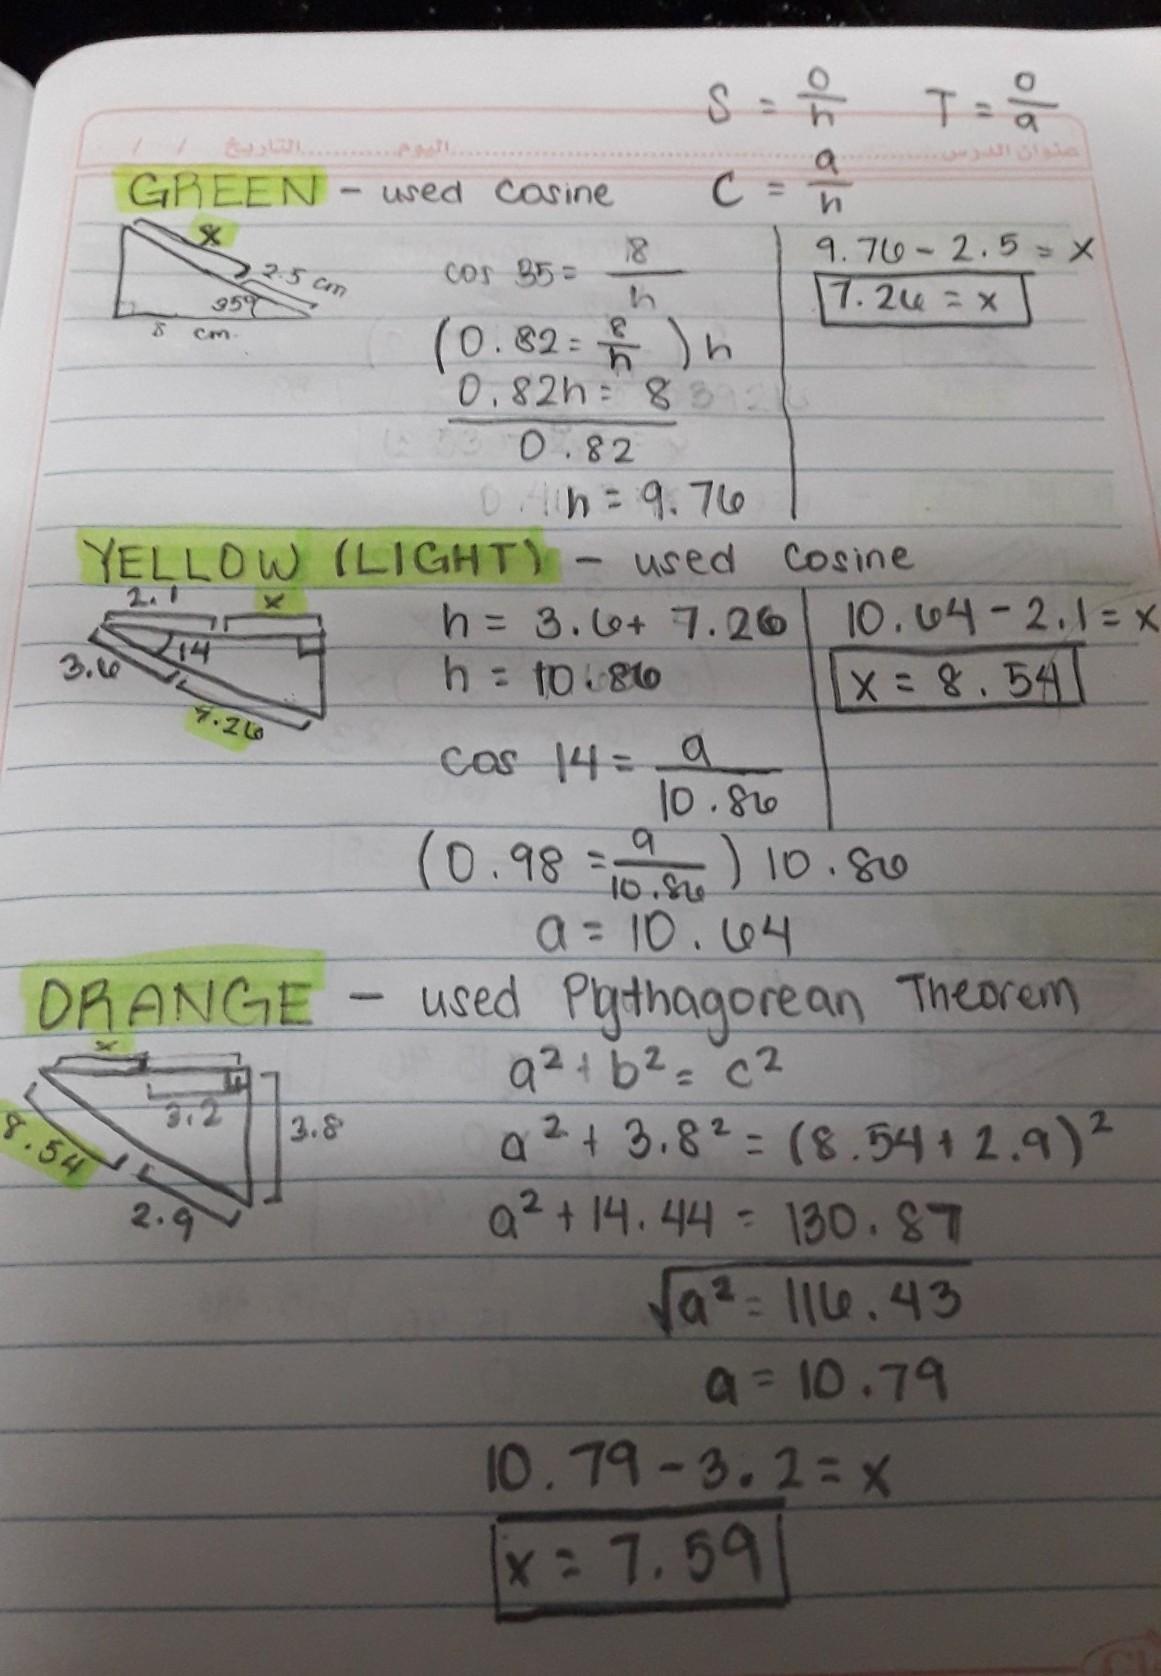 S = o/h T = o/a
عنوان الدرس ........ اليوم ........ التاريخ / /
C = a/h
GREEN - used cosine
x
2.5 cm
35°
8 cm.
cos 35 = 8/h
(0.82 = 8/h) h
0.82h = 8
0.82
h = 9.76
9.76 - 2.5 = x
7.26 = x
YELLOW (LIGHT) - used cosine
2.1 x
14
3.6
7.26
h = 3.6 + 7.26
h = 10.86
cos 14 = a/10.86
(0.98 = a/10.86) 10.86
a = 10.64
10.64 - 2.1 = x
x = 8.54
ORANGE - used Pythagorean Theorem
x
3.2
3.8
8.54
2.9
a² + b² = c²
a² + 3.8² = (8.54 + 2.9)²
a² + 14.44 = 130.87
√a² = 116.43
a = 10.79
10.79 - 3.2 = x
x = 7.59